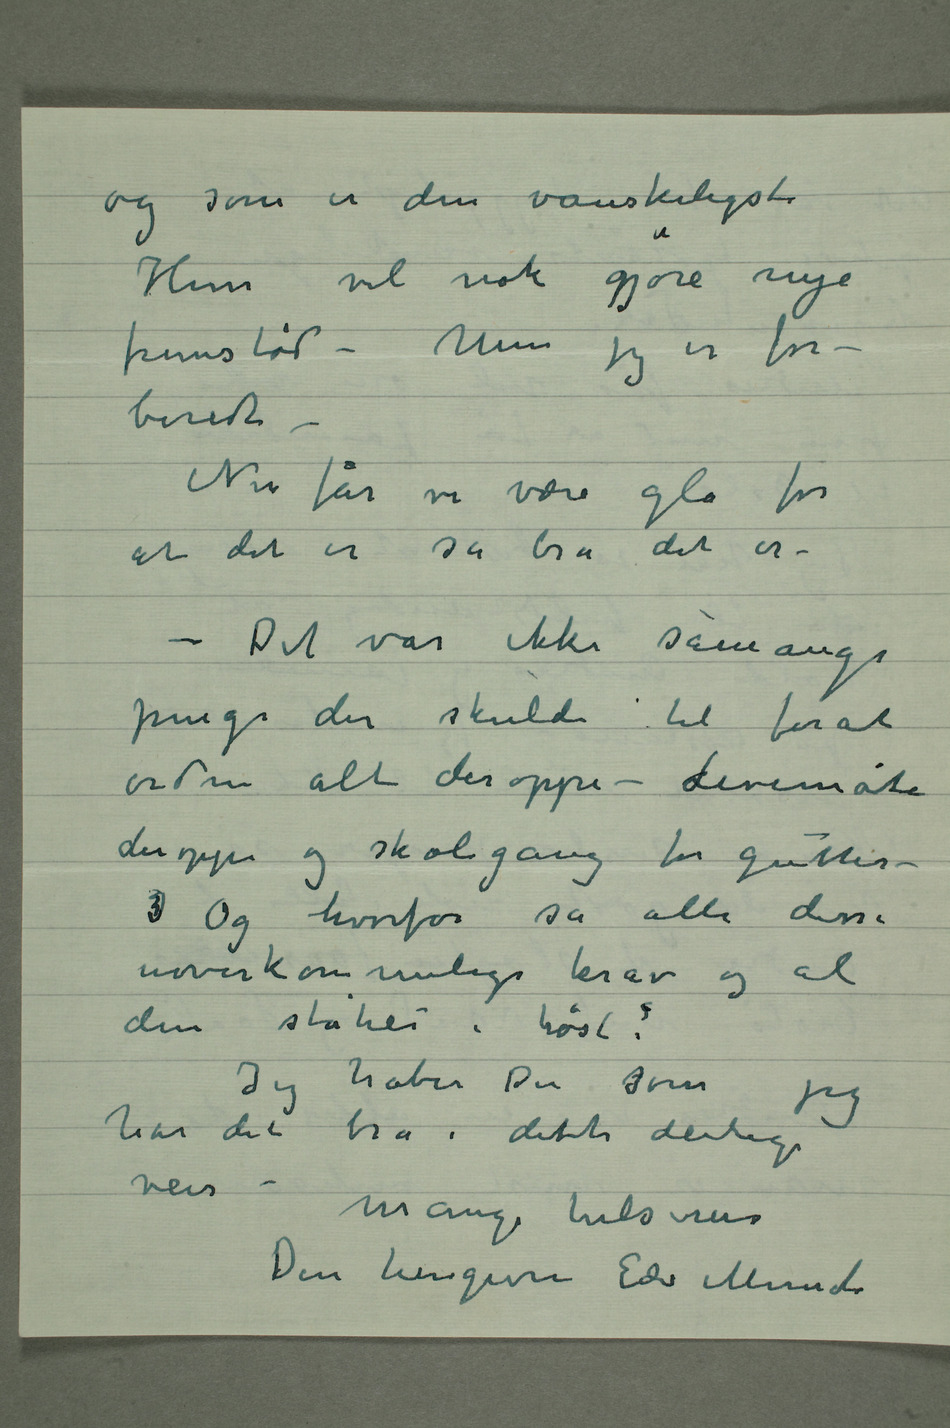 og som er den vanskeligste
Hun vil nok gjøre nye
fremstød – Men jeg er for–
beredt –
Nu får vi være gla for
at det er så bra det er –
– Det var ikke såmange
penge der skulde til forat
ordne alt deroppe – Levemåte
deroppe og skolegang for gutter –
Og hvorfor så alle disse
uoverkommelige krav og al
den ståhei i høst?
Jeg håber Du som jeg
har det bra i dette deilige
veir –
Mange hilsener
Din hengivne Edv Munch